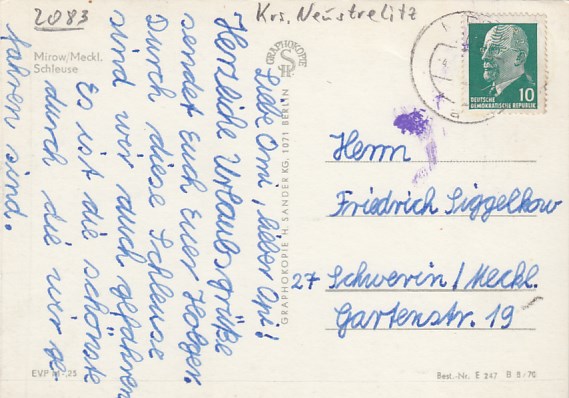 2083
Krs. Neustrelitz
Mirow/Meckl.
Schleuse
Liebe Omi, lieber Opi!
Herzliche Urlaubsgrüße
sendet Euch Euer Holger.
Durch diese Schleuse
sind wir auch gefahren
Es ist die schönste
durch die wir ge-
fahren sind.
GRAPHOKOPIE
GRAPHOKOPIE H. SANDER KG, 1071 BERLIN
DEUTSCHE
DEMOKRATISCHE REPUBLIK
10
Herrn
Friedrich Siggelkow
27 Schwerin/Meckl.
Gartenstr. 19
EVP M -,25
Best.-Nr. E 247 B 5/70